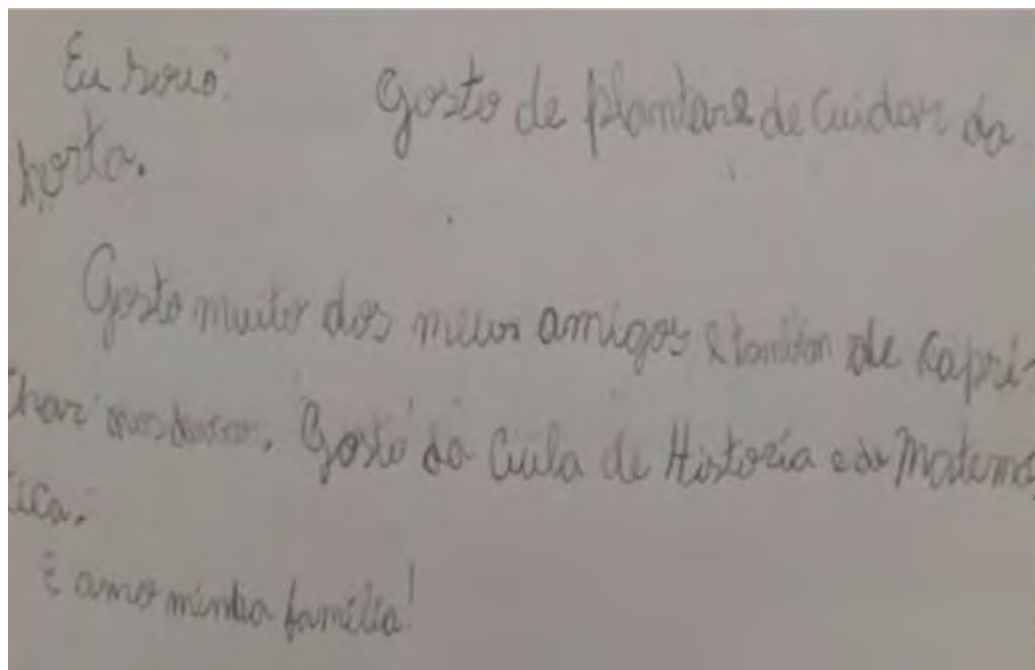 Eu sou o: Gosto de plantar e de cuidar da
horta.
Gosto muito dos meus amigos e também de capri-
char nos deveres. Gosto da aula de Historia e de Matemá
tica.
E amo minha família!